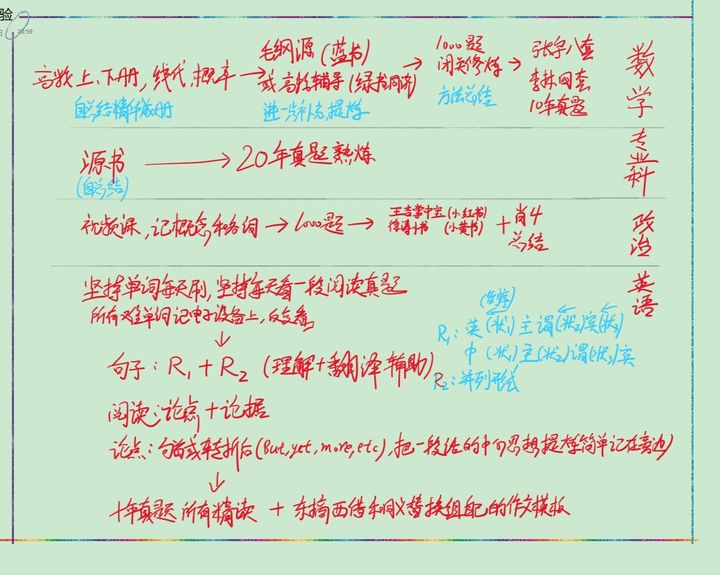 验
20:59
高数上、下册，线代、概率 → 毛纲源（蓝书） → 1000题 → 张宇八套
或高数辅导（绿书同济） 闭关修炼 李林四套
自总结精华成册 进一步补充,提炼 方法总结 10年真题
数学
源书 → 20年真题熟炼
(自总结)
专业科
视频课,记概念和名词 → 1000题 → 王吉掌中宝(小红书) + 肖4
徐涛小书 (小黄书) 总结
政治
英语
坚持单词每天刷,坚持每天看一段阅读真题
所有难单词记电子设备上,反复看
↓
句子: R₁ + R₂ (理解+翻译辅助)
(倒序)
R₁: 英(状₁)主谓(状₂)宾(状₃)
中(状₁)主(状₂)谓(状₃)宾
R₂: 并列形式
阅读:论点+论据
论点:句首或转折后(But,yet,more,etc),把一段话的中心思想提炼简单记在旁边)
↓
十年真题所有精读 + 东搞西借和同义替换组配的作文模板